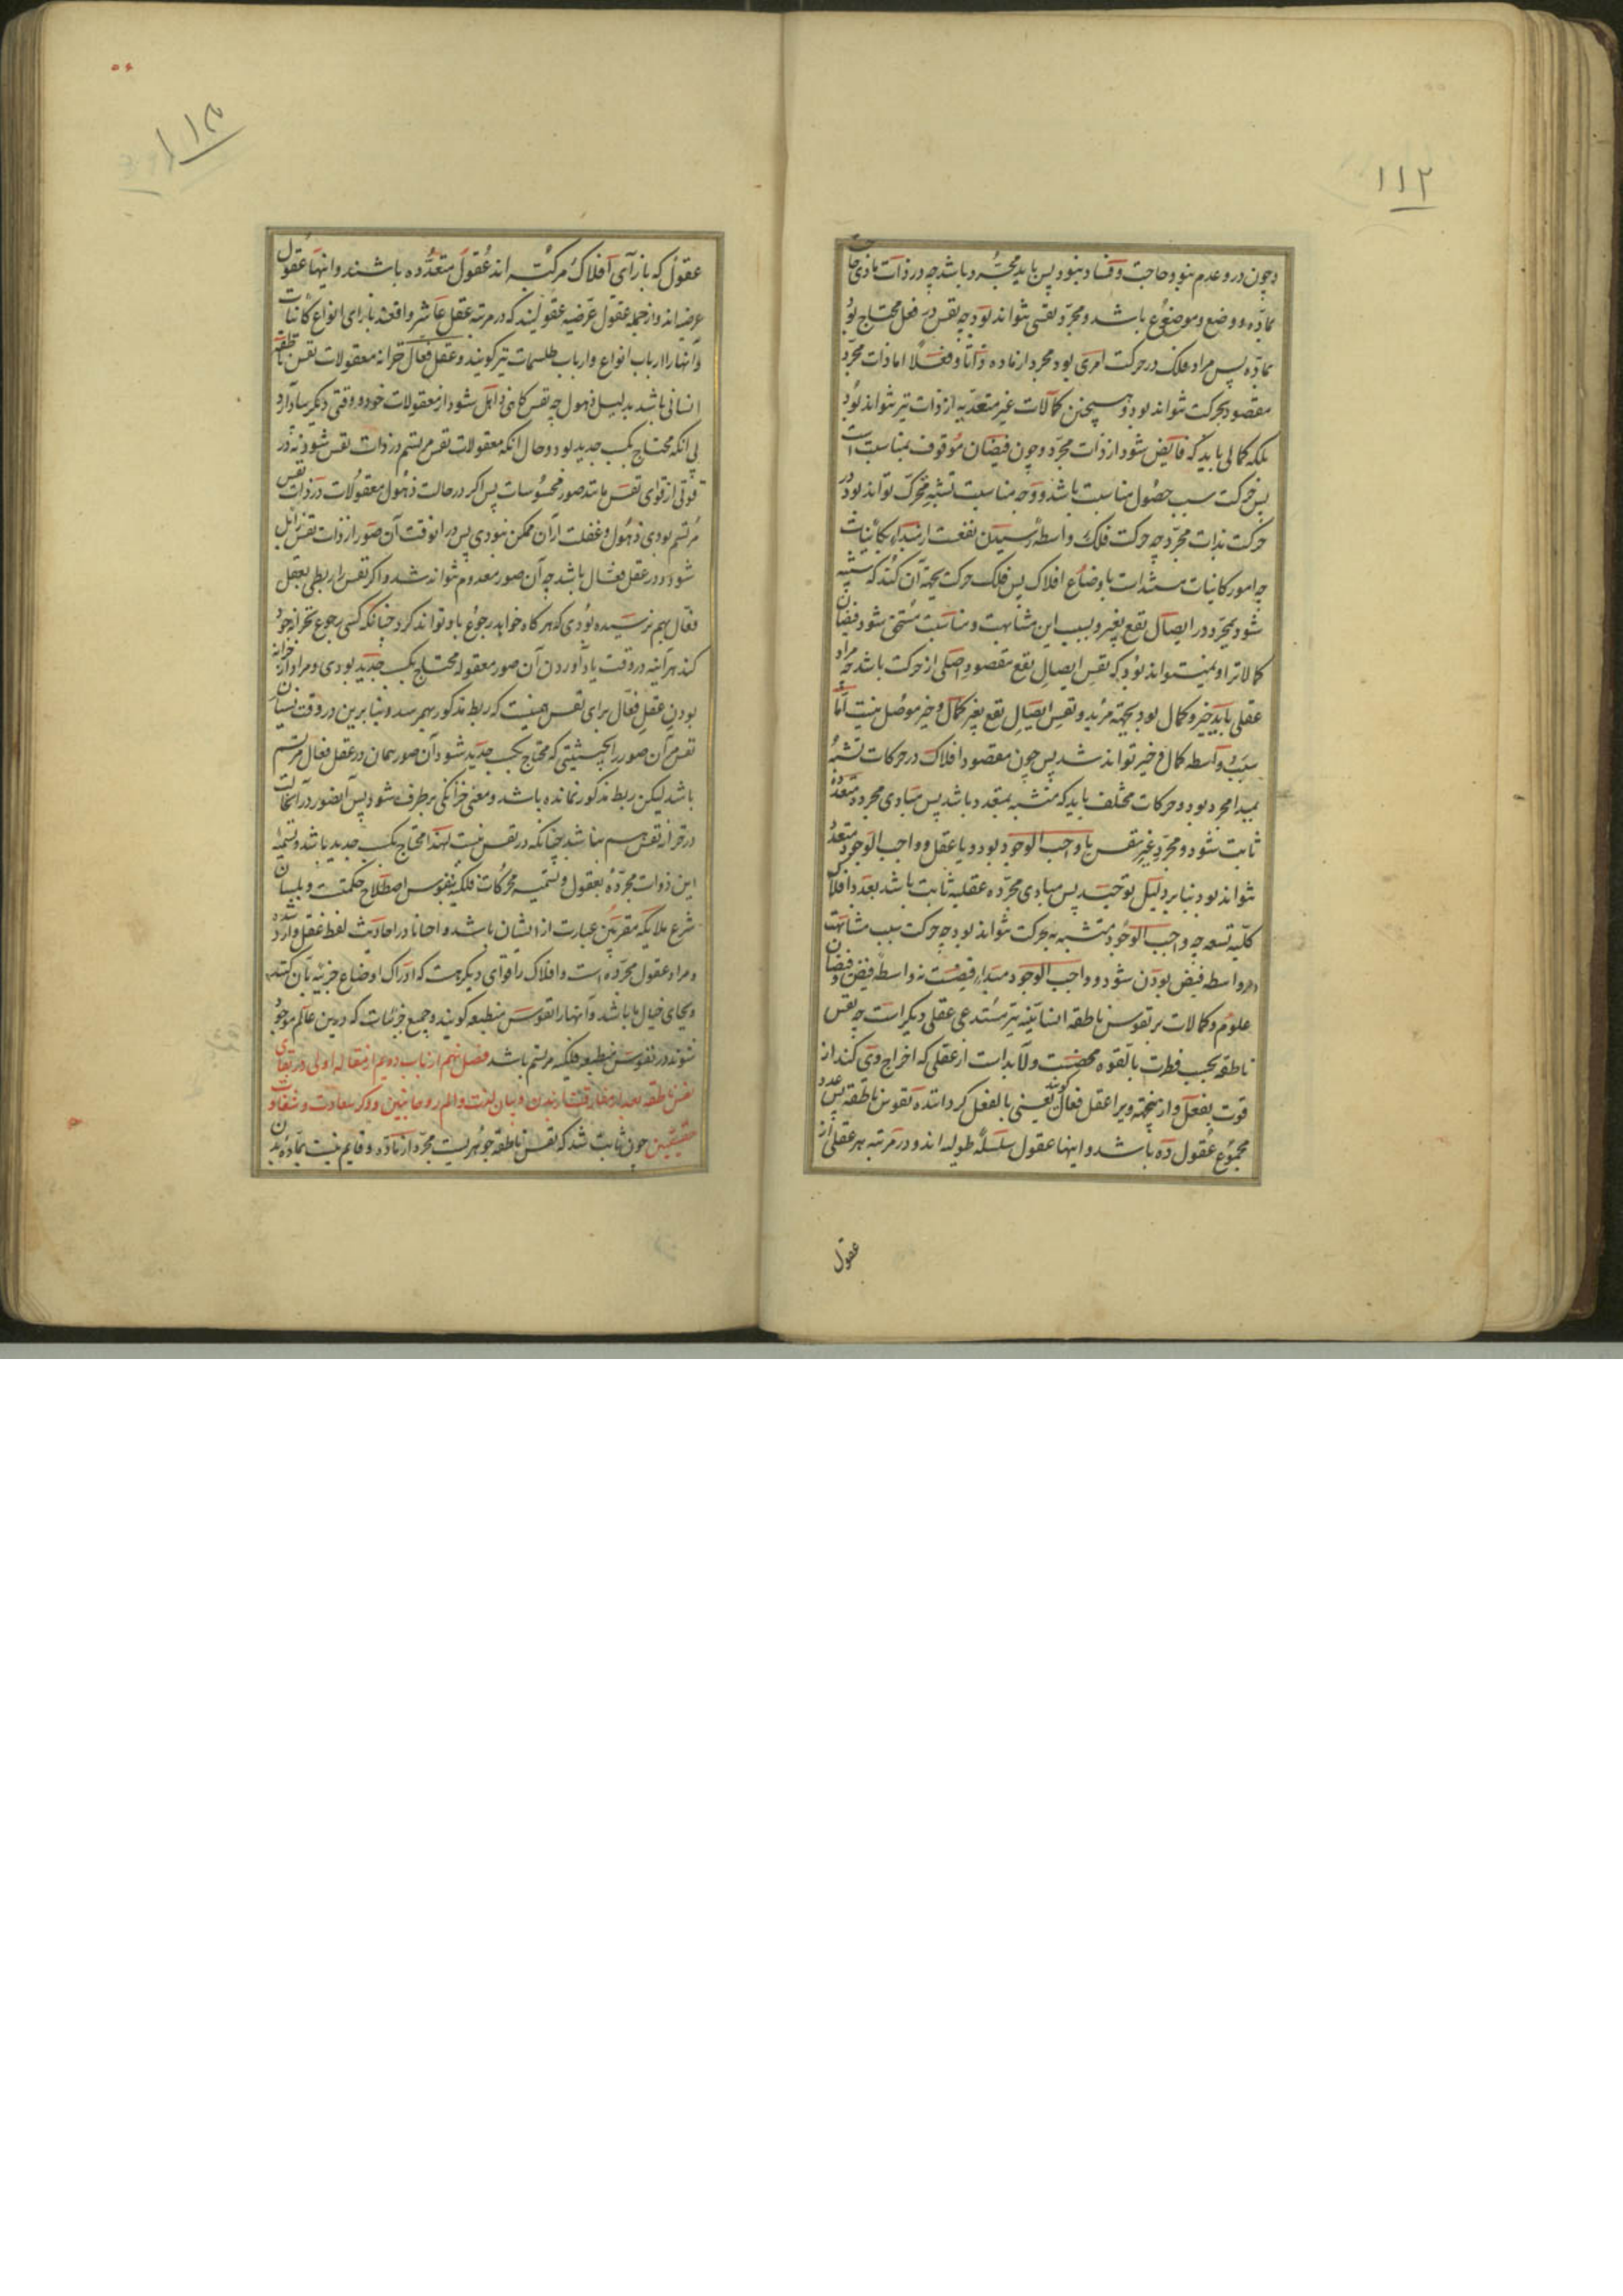 ۱۱۲
و چون در و عدم نبود و حاجت و فساد نبود پس باید مجرد باشد چه در ذات مادی حاجت
بماده و وضع و موضوع باشد و مجرد نفسی نتواند بود چه نفس در فعل محتاج بود
بماده پس مراد فلک در حرکت امری بود مجرد از ماده ذاتا و فعلا اما ذات مجرد
مقصود بحرکت نتواند بود و همچنین کمالات غیر متعدیه از ذات نیز نتواند بود
بلکه کمالی باید که فایض شود از ذات مجرد و چون فیضان موقوف بمناسبت است
پس حرکت سبب حصول مناسبت باشد و وجه مناسبت تشبه محرک تواند بود در
حرکت بذات مجرد چه حرکت فلک واسطه رسیدن نفعست از مبداء بکاینات
چه امور کاینات مستند است باوضاع افلاک پس فلک حرکت بجهة آن کند که متشبه
شود بمجرد در ایصال نفع بغیر و بسبب این مشابهت و مناسبت مستحق شود فیضان
کمالاترا و نمیتواند بود که نفس ایصال نفع مقصود اصلی از حرکت باشد چه مراد
عقلی باید خیر و کمال بود بجهة مرید و نفس ایصال نفع بغیر کمال و خیر موصل نیست اما
سبب و واسطه کمال و خیر تواند شد پس چون مقصود افلاک در حرکات تشبه
بمبدا مجرد بود و حرکات مختلف باید که متشبه به متعدد باشد پس مبادی مجرده متعدده
ثابت شود و مجرد غیر نفس یا واجب الوجود بود و یا عقل و واجب الوجود متعدد
نتواند بود بنا بر دلیل توحید پس مبادی مجرده عقلیه ثابت باشد بعدد افلاک
کلیه تسعه چه واجب الوجود متشبه به بحرکت نتواند بود چه حرکت سبب مشابهت
در واسطه فیض بودن شود و واجب الوجود مبداء فیضست نه واسطه فیض و فیضان
علوم و کمالات بر نفوس ناطقه انسانیه نیز مستدعی عقلی دیگر است چه نفس
ناطقه بحسب فطرت بالقوه محضست و لابد است از عقلی که اخراج وی کند از
قوت بفعل و از ینجهة ویرا عقل فعال گویند یعنی بالفعل گرداننده نفوس ناطقه پس عدد
مجموع عقول ده باشد و اینها عقول سلسله طولیه اند و در مرتبه هر عقلی از
عقول
عقول که بازآی افلاک مرکبه اند عقول متعدده باشند و اینها عقول
عرضیه اند و از جمله عقول عرضیه عقولیند که در مرتبه عقل عاشر واقعند بازای انواع کاینات
و آنها را ارباب انواع و ارباب طلسمات نیز گویند و عقل فعال خزانه معقولات نفس ناطقه
انسانی باشد بدلیل ذهول چه نفس گاهی ذاهل شود از معقولات خود و وقتی دیگر بیاد آرد
بی آنکه محتاج بکسب جدید بود و حال آنکه معقولات نفس مرتسم در ذات نفس شود نه در
قوتی از قوای نفس مانند صور محسوسات پس اگر در حالت ذهول معقولات در ذات نفس
مرتسم بودی ذهول و غفلت از آن ممکن نبودی پس در انوقت آن صور از ذات نفس زایل
شود و در عقل فعال باشد چه آن صور معدوم نتواند شد و اگر نفس را ربطی بعقل
فعال بهم نرسیده بودی که هر گاه خواهد رجوع باو تواند کرد چنانکه کسی رجوع بخزانه خود
کند هرآینه در وقت یادآوردن آن صور معقوله محتاج بکسب جدید بودی و مراد از خزانه
بودن عقل فعال برای نفس همینست که ربط مذکور بهم رسد و بنا برین در وقت نسیان
نفس مر آن صور را بحیثیتی که محتاج بکسب جدید شود آن صور همان در عقل فعال مرتسم
باشد لیکن ربط مذکور نمانده باشد و معنی خزانگی برطرف شود پس آنصور در آنحالت
در خزانه نفس هم نباشد چنانکه در نفس نیست لهذا محتاج بکسب جدید باشد و تسمیه
این ذوات مجرده بعقول و تسمیه محرکات فلکیه بنفوس اصطلاح حکمتست و بلسان
شرع ملایکه مقربین عبارت از ایشان باشد و احیانا در احادیث لفظ عقل وارد شده
و مراد عقول مجرده است و افلاک را قوای دیگر هست که ادراک اوضاع جزییه بآن کنند
و بجای خیال ما باشد و آنها را نفوس منطبعه گویند و جمیع جزئیات که درین عالم موجود
شوند در نفوس منطبعه فلکیه مرتسم باشد فصل نهم از باب دویم از مقاله اولی در بقای
نفس ناطقه بعد از مفارقت از بدن و بیان لذت و الم روحانیین و ذکر سعادت و شقاوت
حقیقین چون ثابت شد که نفس ناطقه جوهریست مجرد از ماده و قایم نیست بماده بدن